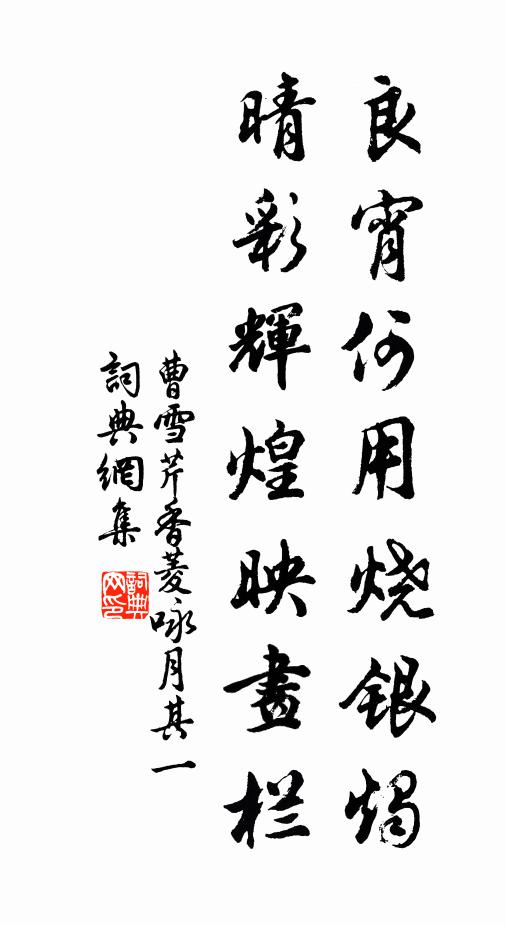 良宵何用烧银烛
晴彩輝煌映畫栏
曹雪芹香菱咏月其一
詞典網集
詞典网印